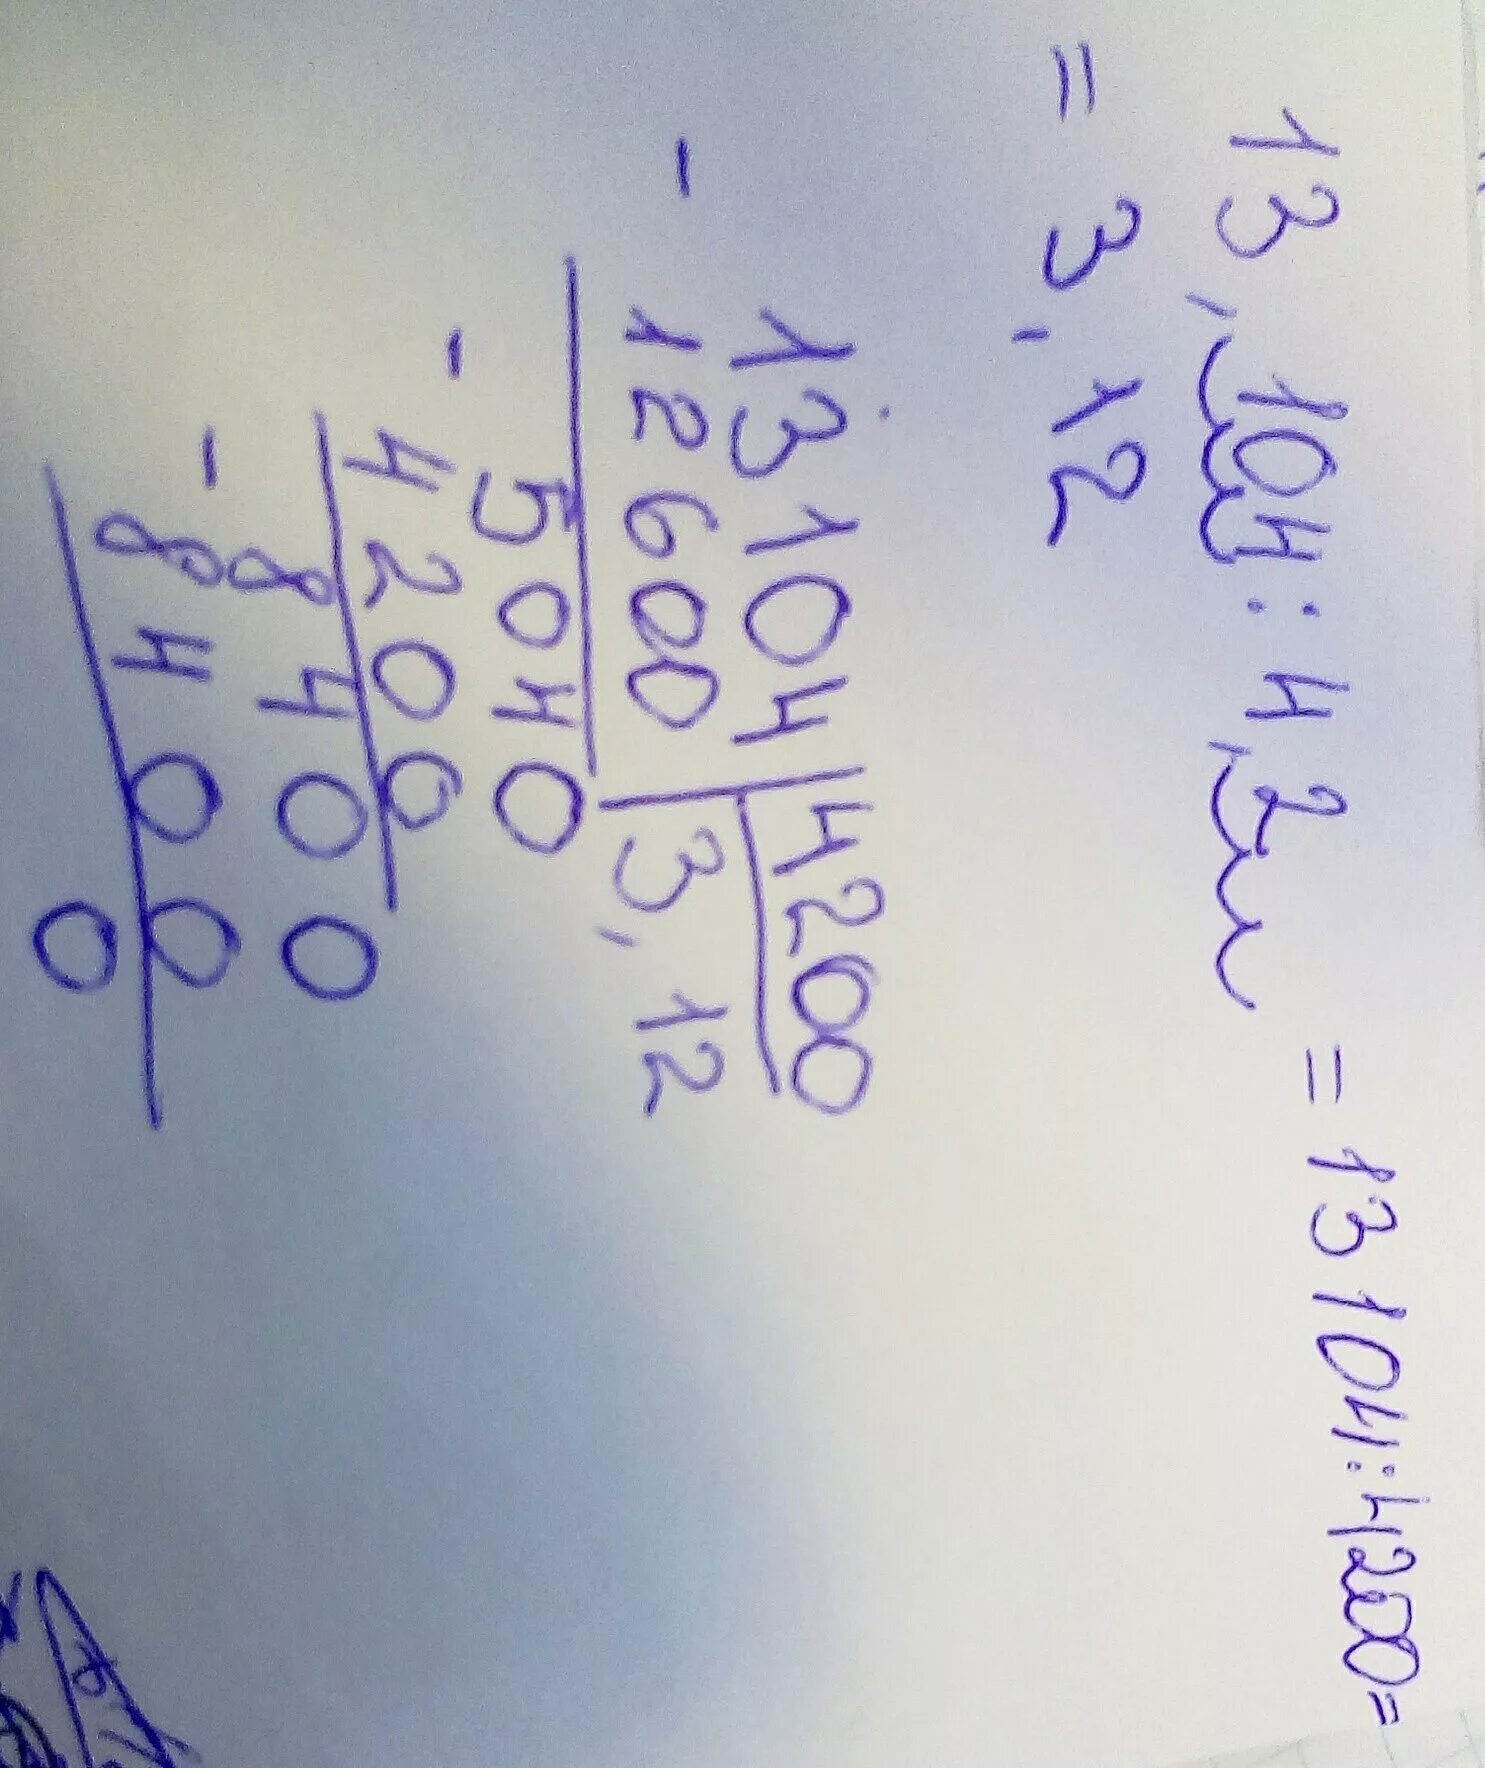 13,104 : 4,2 = 13 104 : 4200 =
= 3,12
13104 | 4200
- 12600 | 3,12
5040
- 4200
8400
- 8400
0